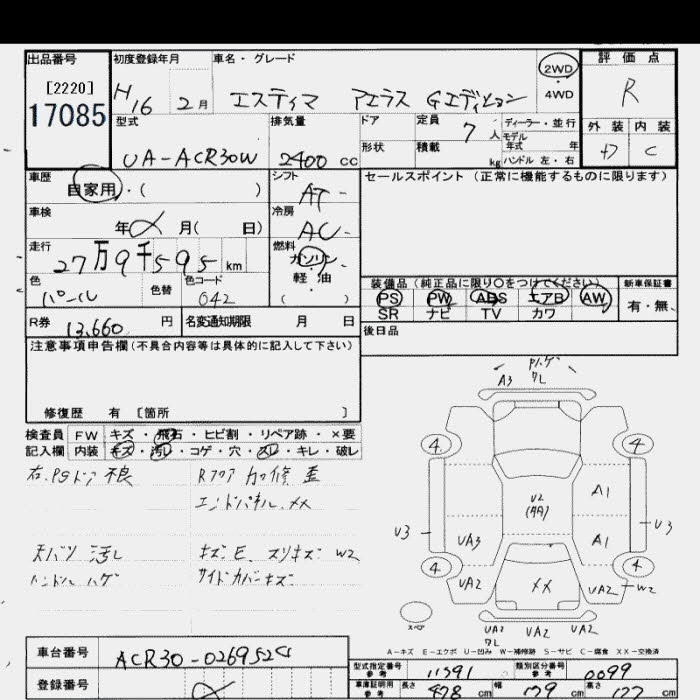 出品番号 初度登録年月 車名・グレード 2WD 評価点
[2220] H16 2月 エスティマ アエラス Gエディション 4WD R
17085 型式 排気量 ドア 定員 7人 ディーラー・並行 外装 内装
UA-ACR30W 2400cc 形状 積載 kg モデル年式 年 ハンドル 左・右 C
車歴 自家用・( ) シフト AT セールスポイント (正常に機能するものに限ります)
車検 年 月( 日) 冷房 AC
走行 27万9千595km 燃料 ガソリン・軽油 ( )
色 パール 色替 色コード 042 装備品 (純正品に限り○をつけてください) 新車保証書
PS PW ABS エアB AW 有・無
SR ナビ TV カワ
R券 13,660円 名変通知期限 月 日 後日品
注意事項申告欄(不具合内容等は具体的に記入して下さい)
修復歴 有 [箇所 ]
検査員 FW キズ・飛石・ヒビ割・リペア跡・×要
記入欄 内装 キズ・汚レ・コゲ・穴・スレ・キレ・破レ
右、PSドア不良 Rフロア
エンドパネルXX
天バリ 汚レ キズE、スリキズ W2
ハンドル ハゲ サイドカバーキズ
A3 ワレ
4 4
U2
A1
U3 UA3 A1 U3
4 4
UA2 XX UA2 W2
スペア
UA2 UA2 UA2
ワレ
A-キズ E-エクボ U-凹み W-補修跡 S-サビ C-腐食 XX-交換済
車台番号 ACR30-0269524
登録番号
型式指定番号 参考 11591 類別区分番号 参考 0099
車庫証明用 参考 長さ 478cm 幅 179cm 高さ 177cm